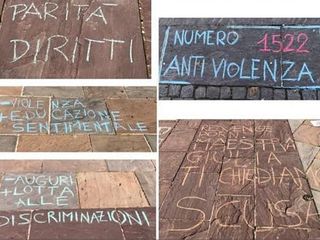 PARITÀ
DIRITTI
NUMERO 1522
ANTI VIOLENZA
-VIOLENZA
+EDUCAZIONE
SENTIMENTALE
-AUGURI
+LOTTA
ALLE
DISCRIMINAZIONI
REVENGE
MAESTRA
GIULIA
TI CHIEDIAMO
SCUSA